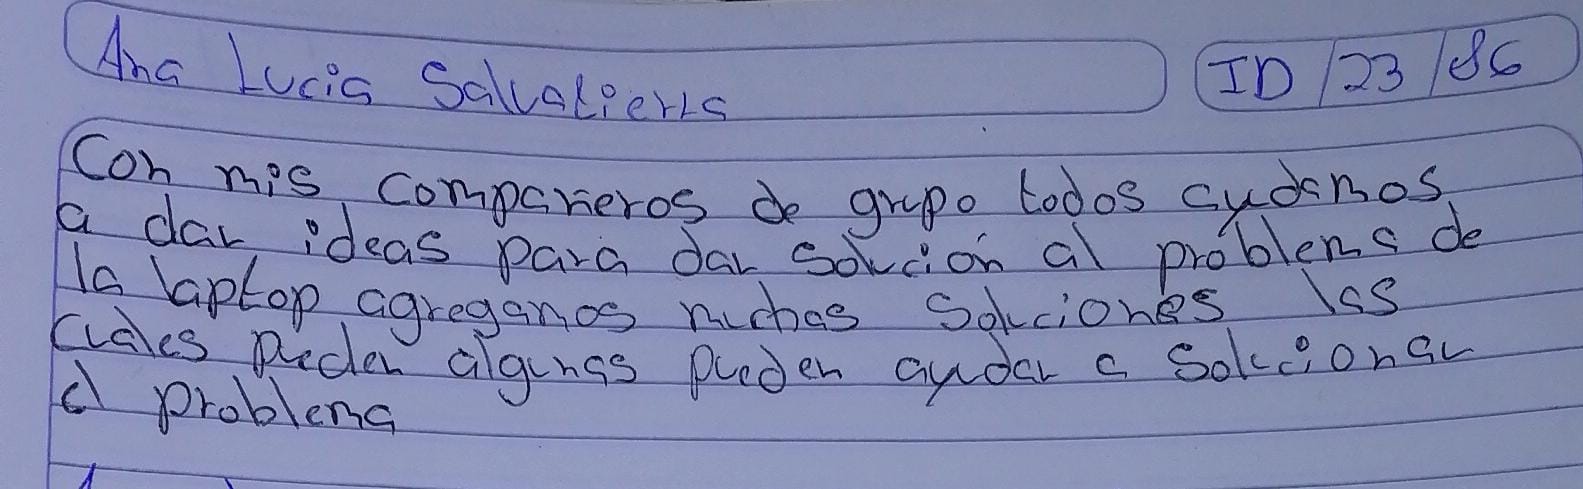 Ana Lucia Salvatierra
ID / 23 / 86
Con mis compañeros de grupo todos ayudamos
a dar ideas para dar solución al problema de
la laptop agregamos muchas soluciones las
cuales pueden algunas pueden ayudar a solucionar
el problema